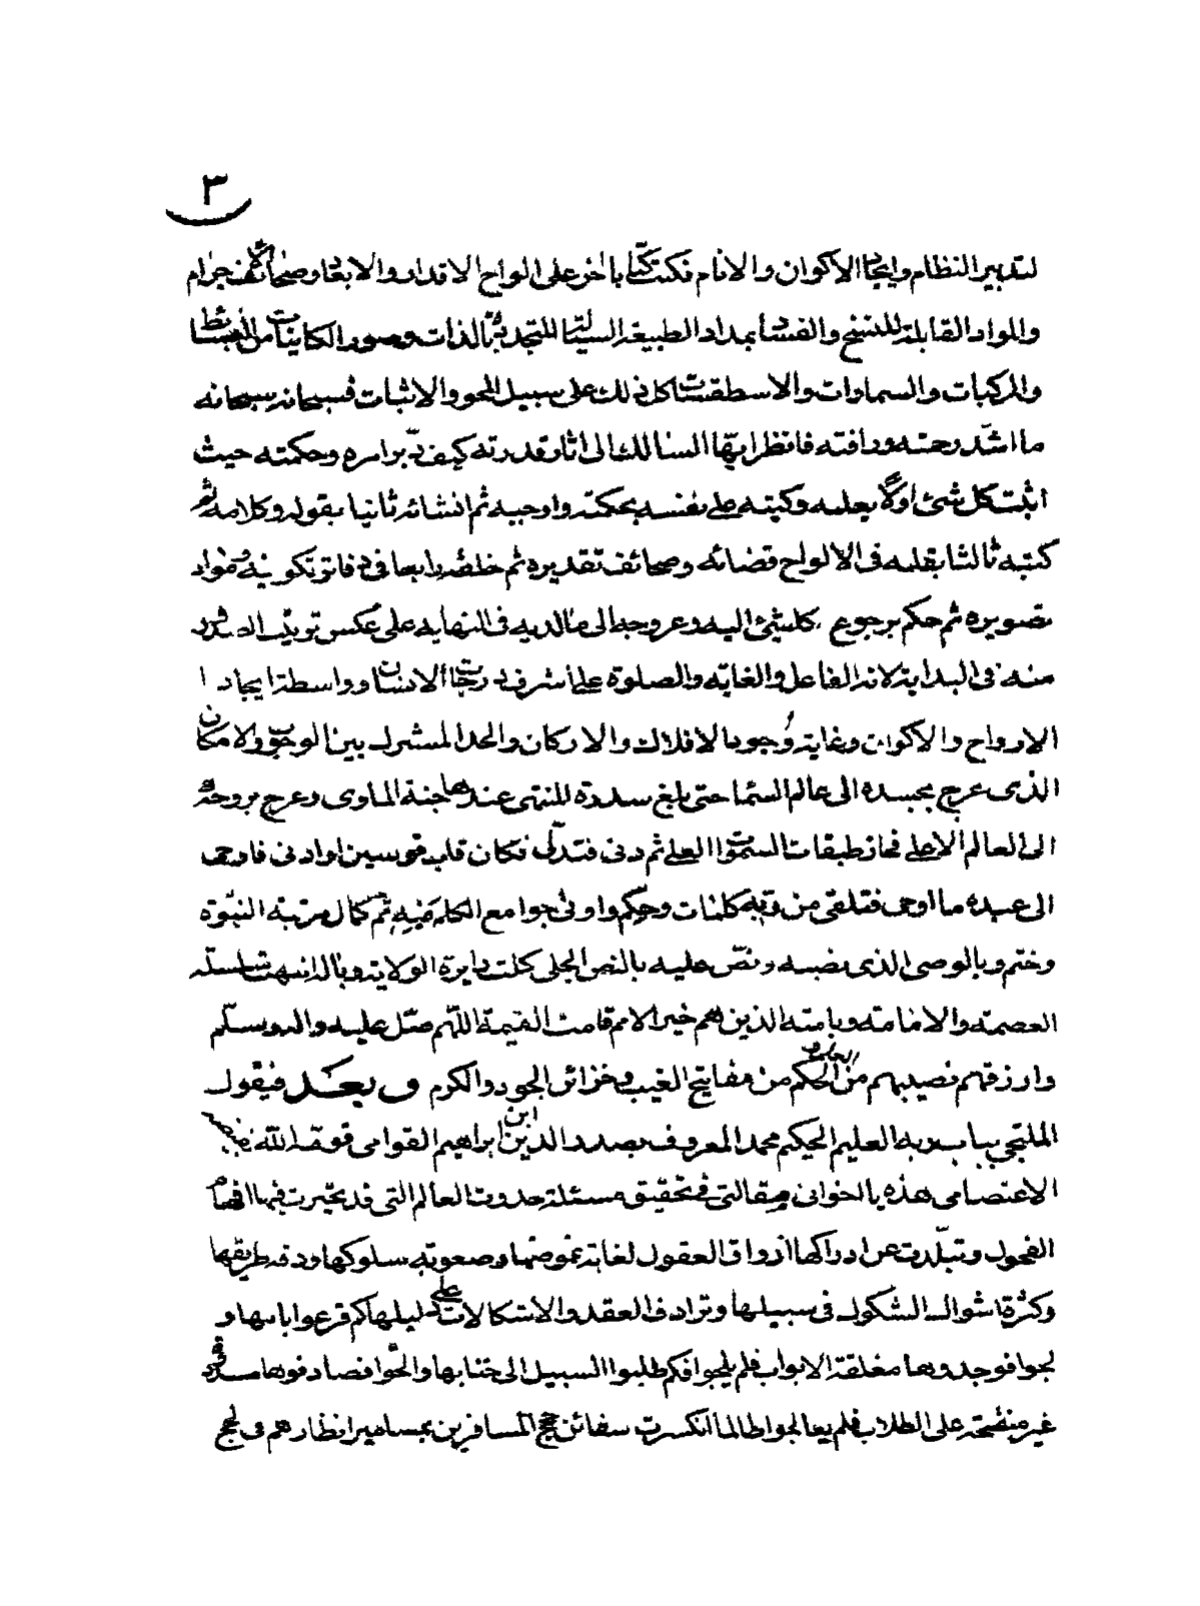 ٣
لتدبير النظام وايجاد الاكوان والانام فكتب كتابا اخر على الواح الاقدار والابعاد وصحائف الاجرام
والمواد القابلة للنسخ والفساد بمداد الطبيعة السيالة المتجددة بالذات وصور الكاينات من البسائط
والمركبات والسماوات والاسطقسات كل ذلك على سبيل المحو والاثبات فسبحانه سبحانه
ما اشد رحمته ورافته فانظر ايها السالك الى اثار قدرته كيف دبر امره وحكمته حيث
اثبت كل شئ اولا بعلمه وكتبه على نفسه بحكمته واوجبه ثم انشائه ثانيا بقوله وكلامه ثم
كتبه ثالثا بقلمه فى الالواح قضائه وصحائف تقديره ثم خلقه رابعا فى دفاتر تكوينه ومواد
تصويره ثم حكم برجوع كلشئ اليه وعروجه الى ما لديه فى النهاية على عكس ترتيب الصدور
منه فى البداية لانه الفاعل والغاية والصلوة على اشرف درجات الانسان وواسطة ايجاد ا
الارواح والاكوان وغاية وجود الافلاك والاركان والحد المشترك بين الوجوب والامكان
الذى عرج بجسده الى عالم السماء حتى بلغ سدرة المنتهى عندها جنة الماوى وعرج بروحه
الى العالم الاعلى فجاز طبقات السموات العلى ثم دنى فتدلى فكان قاب قوسين او ادنى فاوحى
الى عبده ما اوحى فتلقى من ربه كلمات وحكم واوتى جوامع الكلم فبه تم كمال مرتبة النبوة
وختم وبالوصى الذى نصبه ونص عليه بالنص الجلى كملت دايرة الولاية وباله انتهت سلسلة
العصمة والامامة وبامته الذين هم خير الامم قامت القيمة اللهم صل عليه واله وسلم
وارزقهم نصيبهم من العلوم الحكم من مفاتيح الغيب وخزائن الجود والكرم وبعد فيقول
الملتجى بباب ربه العليم الحكيم محمد المعروف بصدر الدين ابن ابراهيم القوامى قوته الله
الاعتصامى هذه يا اخوانى مقالتى فى تحقيق مسئلة حدوث العالم التى قد تحيرت فيها افهام
الفحول وتبلدت عن ادراكها اذواق العقول لغاية غموضها وصعوبة سلوكها ودقة طريقها
وكثرة اشواك الشكوك فى سبيلها وترادف العقد والاشكالات على دليلها كم قرعوا بابها و
لجوا فوجدوها مغلقة الابواب فلم يلجوا فكم طلبوا السبيل الى جنابها والحوا فصادفوها مسدودة
غير منفتحة على الطلاب فلم يعالجوا طالما انكسرت سفائن حجج المسافرين بمسامير انظارهم فى لجج